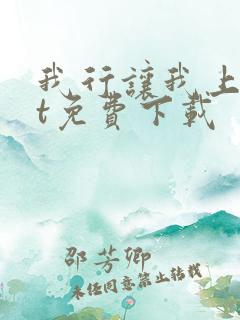 我行讓我上
t免費下載
邵芳卿
未经同意禁止转载